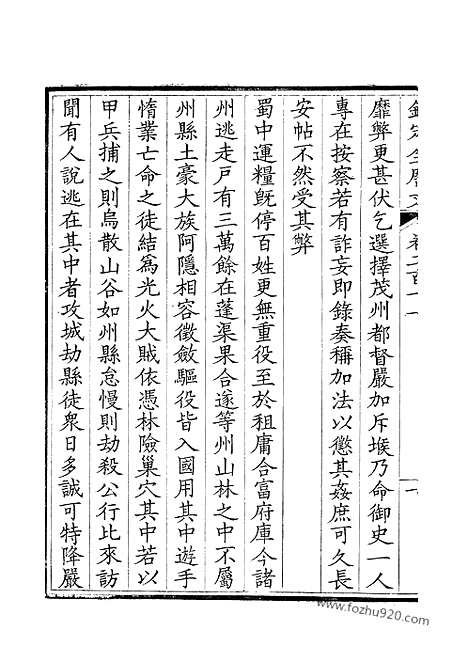 靡弊更甚伏乞選擇茂州都督嚴加斥堠乃命御史一人
專在按察若有詐妄即錄奏稱加法以懲其姦庶可久長
安帖不然受其弊
蜀中運糧旣停百姓更無重役至於租庸合富府庫今諸
州逃走戶有三萬餘在蓬渠果合遂等州山林之中不屬
州縣土豪大族阿隱相容徵斂驅役皆入國用其中遊手
惰業亡命之徒結爲光火大賊依憑林險巢穴其中若以
甲兵捕之則烏散山谷如州縣怠慢則劫殺公行比來訪
聞有人說逃在其中者攻城劫縣徒衆日多誠可特降嚴
www.fozhu920.com